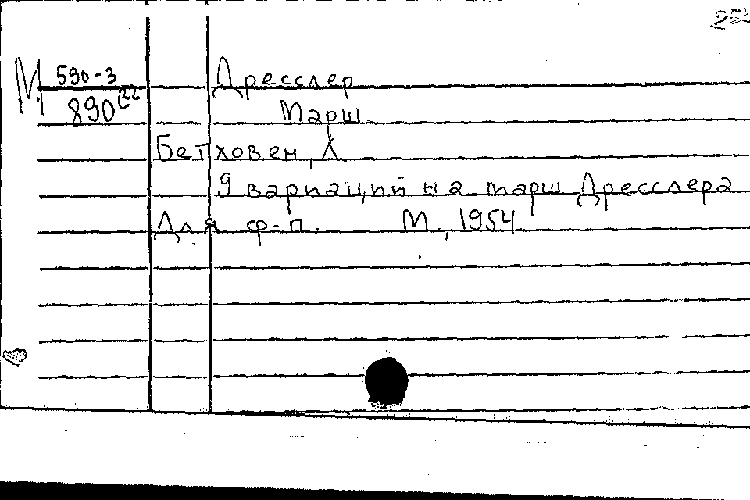 М 590-3
890²²
Дресслер
Марш
Бетховен, Л
9 вариаций на марш Дресслера
Для ф-п. М., 1954